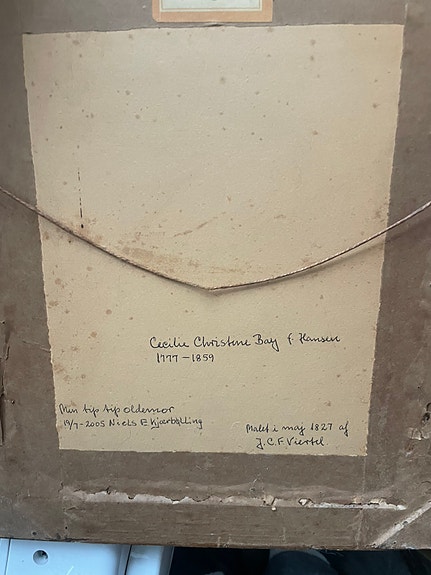 Cecilie Christine Bay f. Hansen
1777 – 1859
Min tip tip oldemor
19/7-2005 Niels E Kjærbølling
Malet i maj 1827 af
J.C.F. Viertel